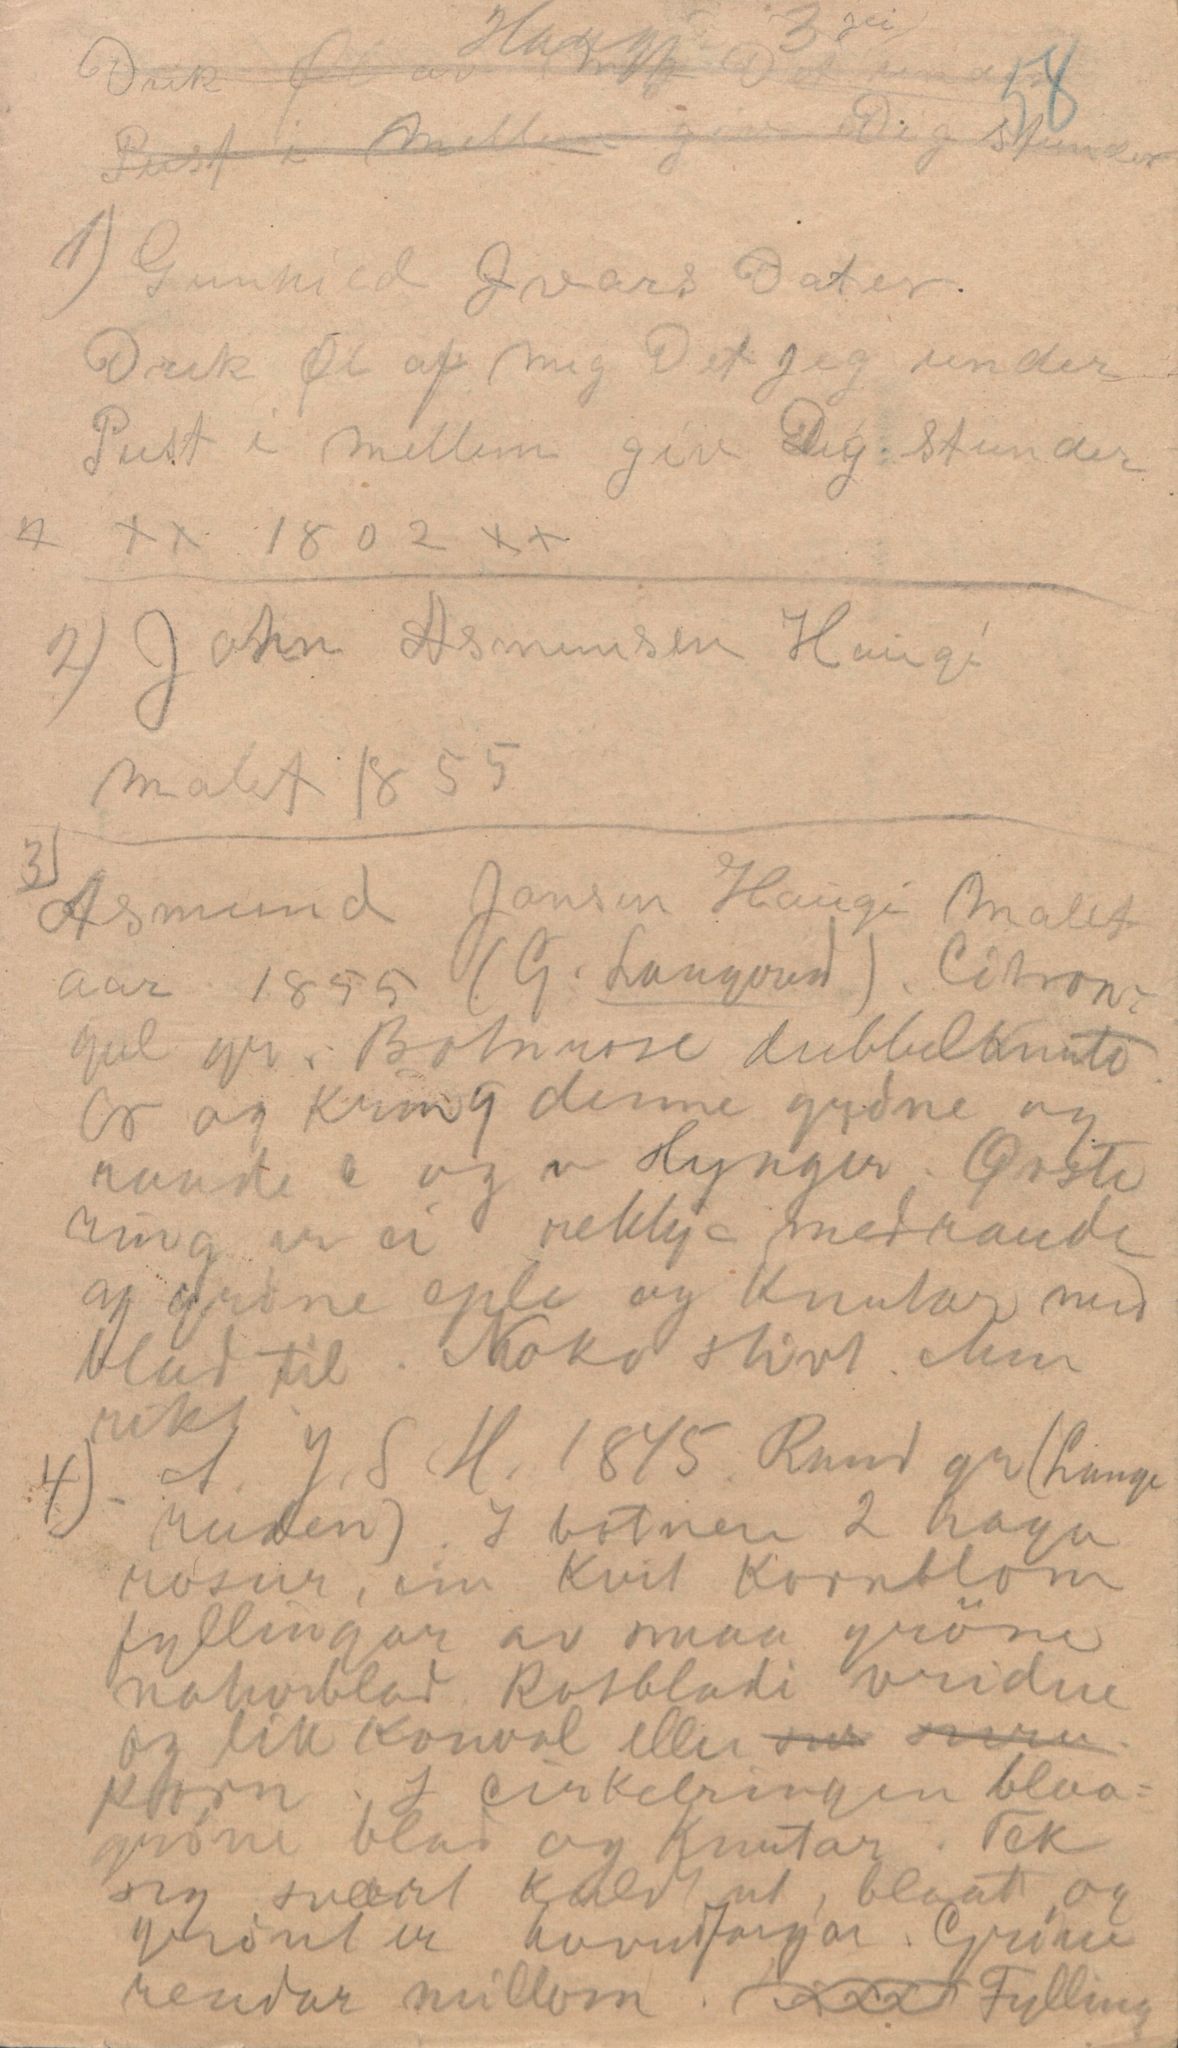 Haugi 3
Drik Øl av Det under
58
Pust i Mellem giv Dig stunder
1) Gunhild Jvars Dater.
Drik Øl af Mig Det Jeg under
Pust i mellem giv Dig stunder
xx 1802 xx
2) John Asmunsen Haugi
Malet 1855
3)
Asmund Jonsen Haugi Malet
aar 1855 (G. Langerud). Citron-
gul gr. Botnrose dubbelknute
er og kring denne grøne og
raude c og v slynger. Ørste
ring er ei rekkje med raude
og grøne eple og knutar med
blad til. Noko stivt. Men
rikt.
4) - A. J. S H. 1845. Rund gr (Lange
ruden). I botnen 2 haga
rosur, ein kvit kornblom
fyllingar av smaa gröne
naturblad. Rotbladi vridne
og lik konval eller
korn. I cirkelringen blaa-
grøne blad og knutar. Tek
seg svært kaldt ut, blaat og
grønt er hovudfargar. Grøne
rendar millom. Fylling